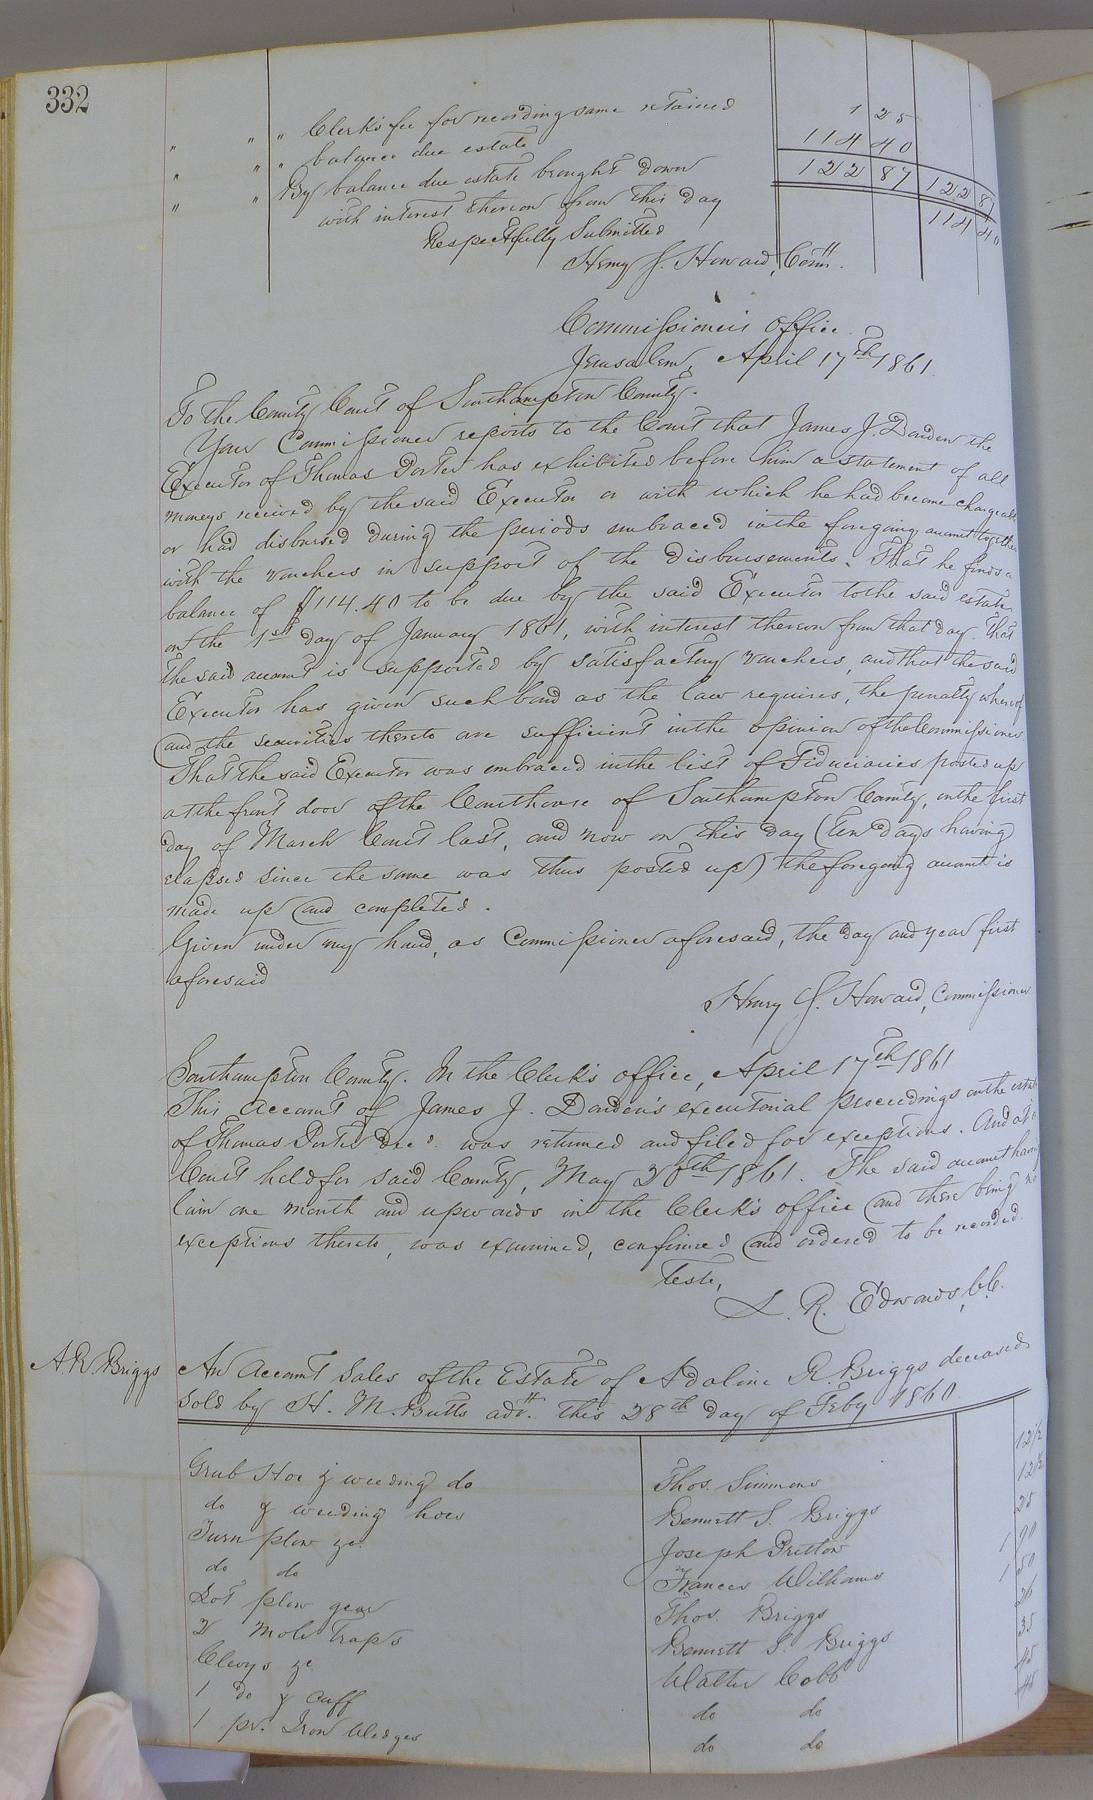 332
" " " Clerk's fee for recording same retained 1 25
" " " balance due estate 114 40
122 87 122 87
" " By balance due estate brought down 114 40
with interest thereon from this day
Respectfully Submitted
Henry J. Howard, Comr.
Commissioner's office
Jerusalem, April 17th 1861.
To the County Court of Southampton County.
Your Commissioner reports to the Court that James J. Darden the
Executor of Thomas Porter has exhibited before him a statement of all
moneys received by the said Executor or with which he had become chargeable
or had disbursed during the periods embraced in the foregoing account together
with the vouchers in support of the disbursements. That he finds a
balance of $114.40 to be due by the said Executor to the said estate
on the 1st day of January 1861, with interest thereon from that day. That
the said account is supported by satisfactory vouchers, and that the said
Executor has given such bond as the law requires, the penalty whereof
and the securities thereto are sufficient in the opinion of the Commissioner.
That the said Executor was embraced in the list of Fiduciaries posted up
at the front door of the Courthouse of Southampton County, on the first
day of March Court last, and now on this day (ten days having
elapsed since the same was thus posted up) the foregoing account is
made up and completed.
Given under my hand, as Commissioner aforesaid, the day and year first
aforesaid
Henry J. Howard, Commissioner
Southampton County. In the Clerk's office, April 17th 1861
This account of James J. Darden's executorial proceedings on the estate
of Thomas Porter decd. was returned and filed for exceptions. And at a
Court held for said County, May 20th 1861. The said account having
lain one month and upwards in the Clerk's office and there being no
exceptions thereto, was examined, confirmed and ordered to be recorded.
Teste,
L. R. Edwards, C.C.
A. R. Briggs
An Account Sales of the Estate of Adaline R. Briggs deceased
Sold by H. M. Butts adr. this 28th day of Feby 1860.
Grub Hoe & weeding do Thos. Simmons 12½
do & weeding hoes Bennett S. Briggs 12½
Turn plow &c Joseph Pretlow 25
do do Frances Williams 1 90
Lot plow gear Thos. Briggs 1 50
2 Mole Traps Bennett S. Briggs 26
Clevys &c Walter Cobb 35
1 do & Cuff do do 45
1 pr. Iron Wedges do do